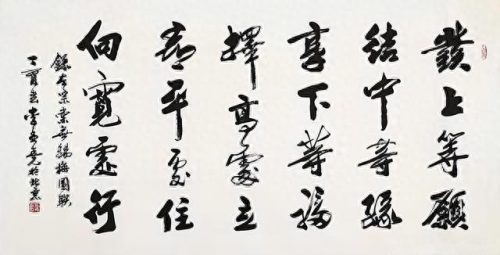 發上等願
結中等緣
享下等福
擇高處立
尋平處住
向寬處行
錄左宗棠無錫梅園聯
丁酉 於北京